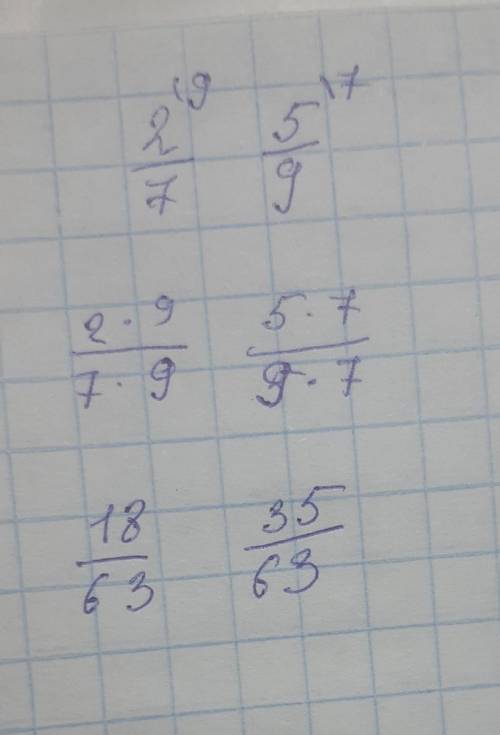 \9 \7
2/7 5/9
2·9/7·9 5·7/9·7
18/63 35/63